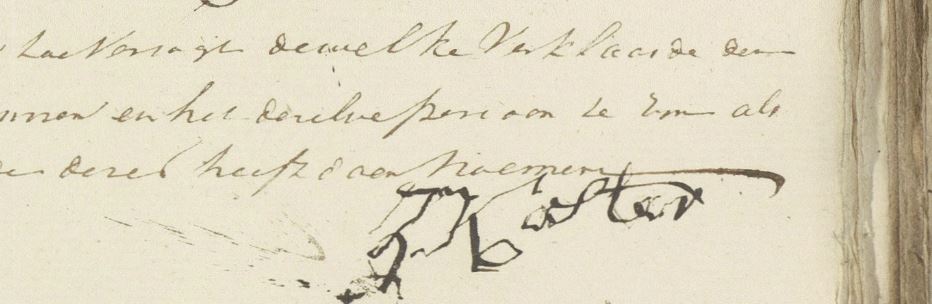 dewelke Verklaarde den
en het deselve persoon te zyn als
deses heeft doen Noemen
J Koster